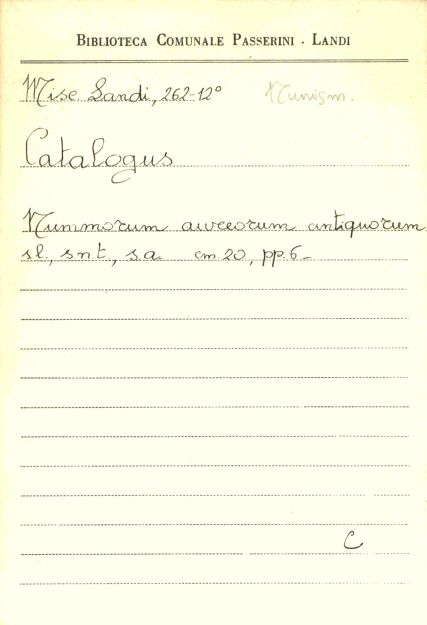 BIBLIOTECA COMUNALE PASSERINI - LANDI
Misc. Landi, 262-12° Numism.
Catalogus
Nummorum aureorum antiquorum
sl., snt., s.a. cm. 20, pp. 6_
C